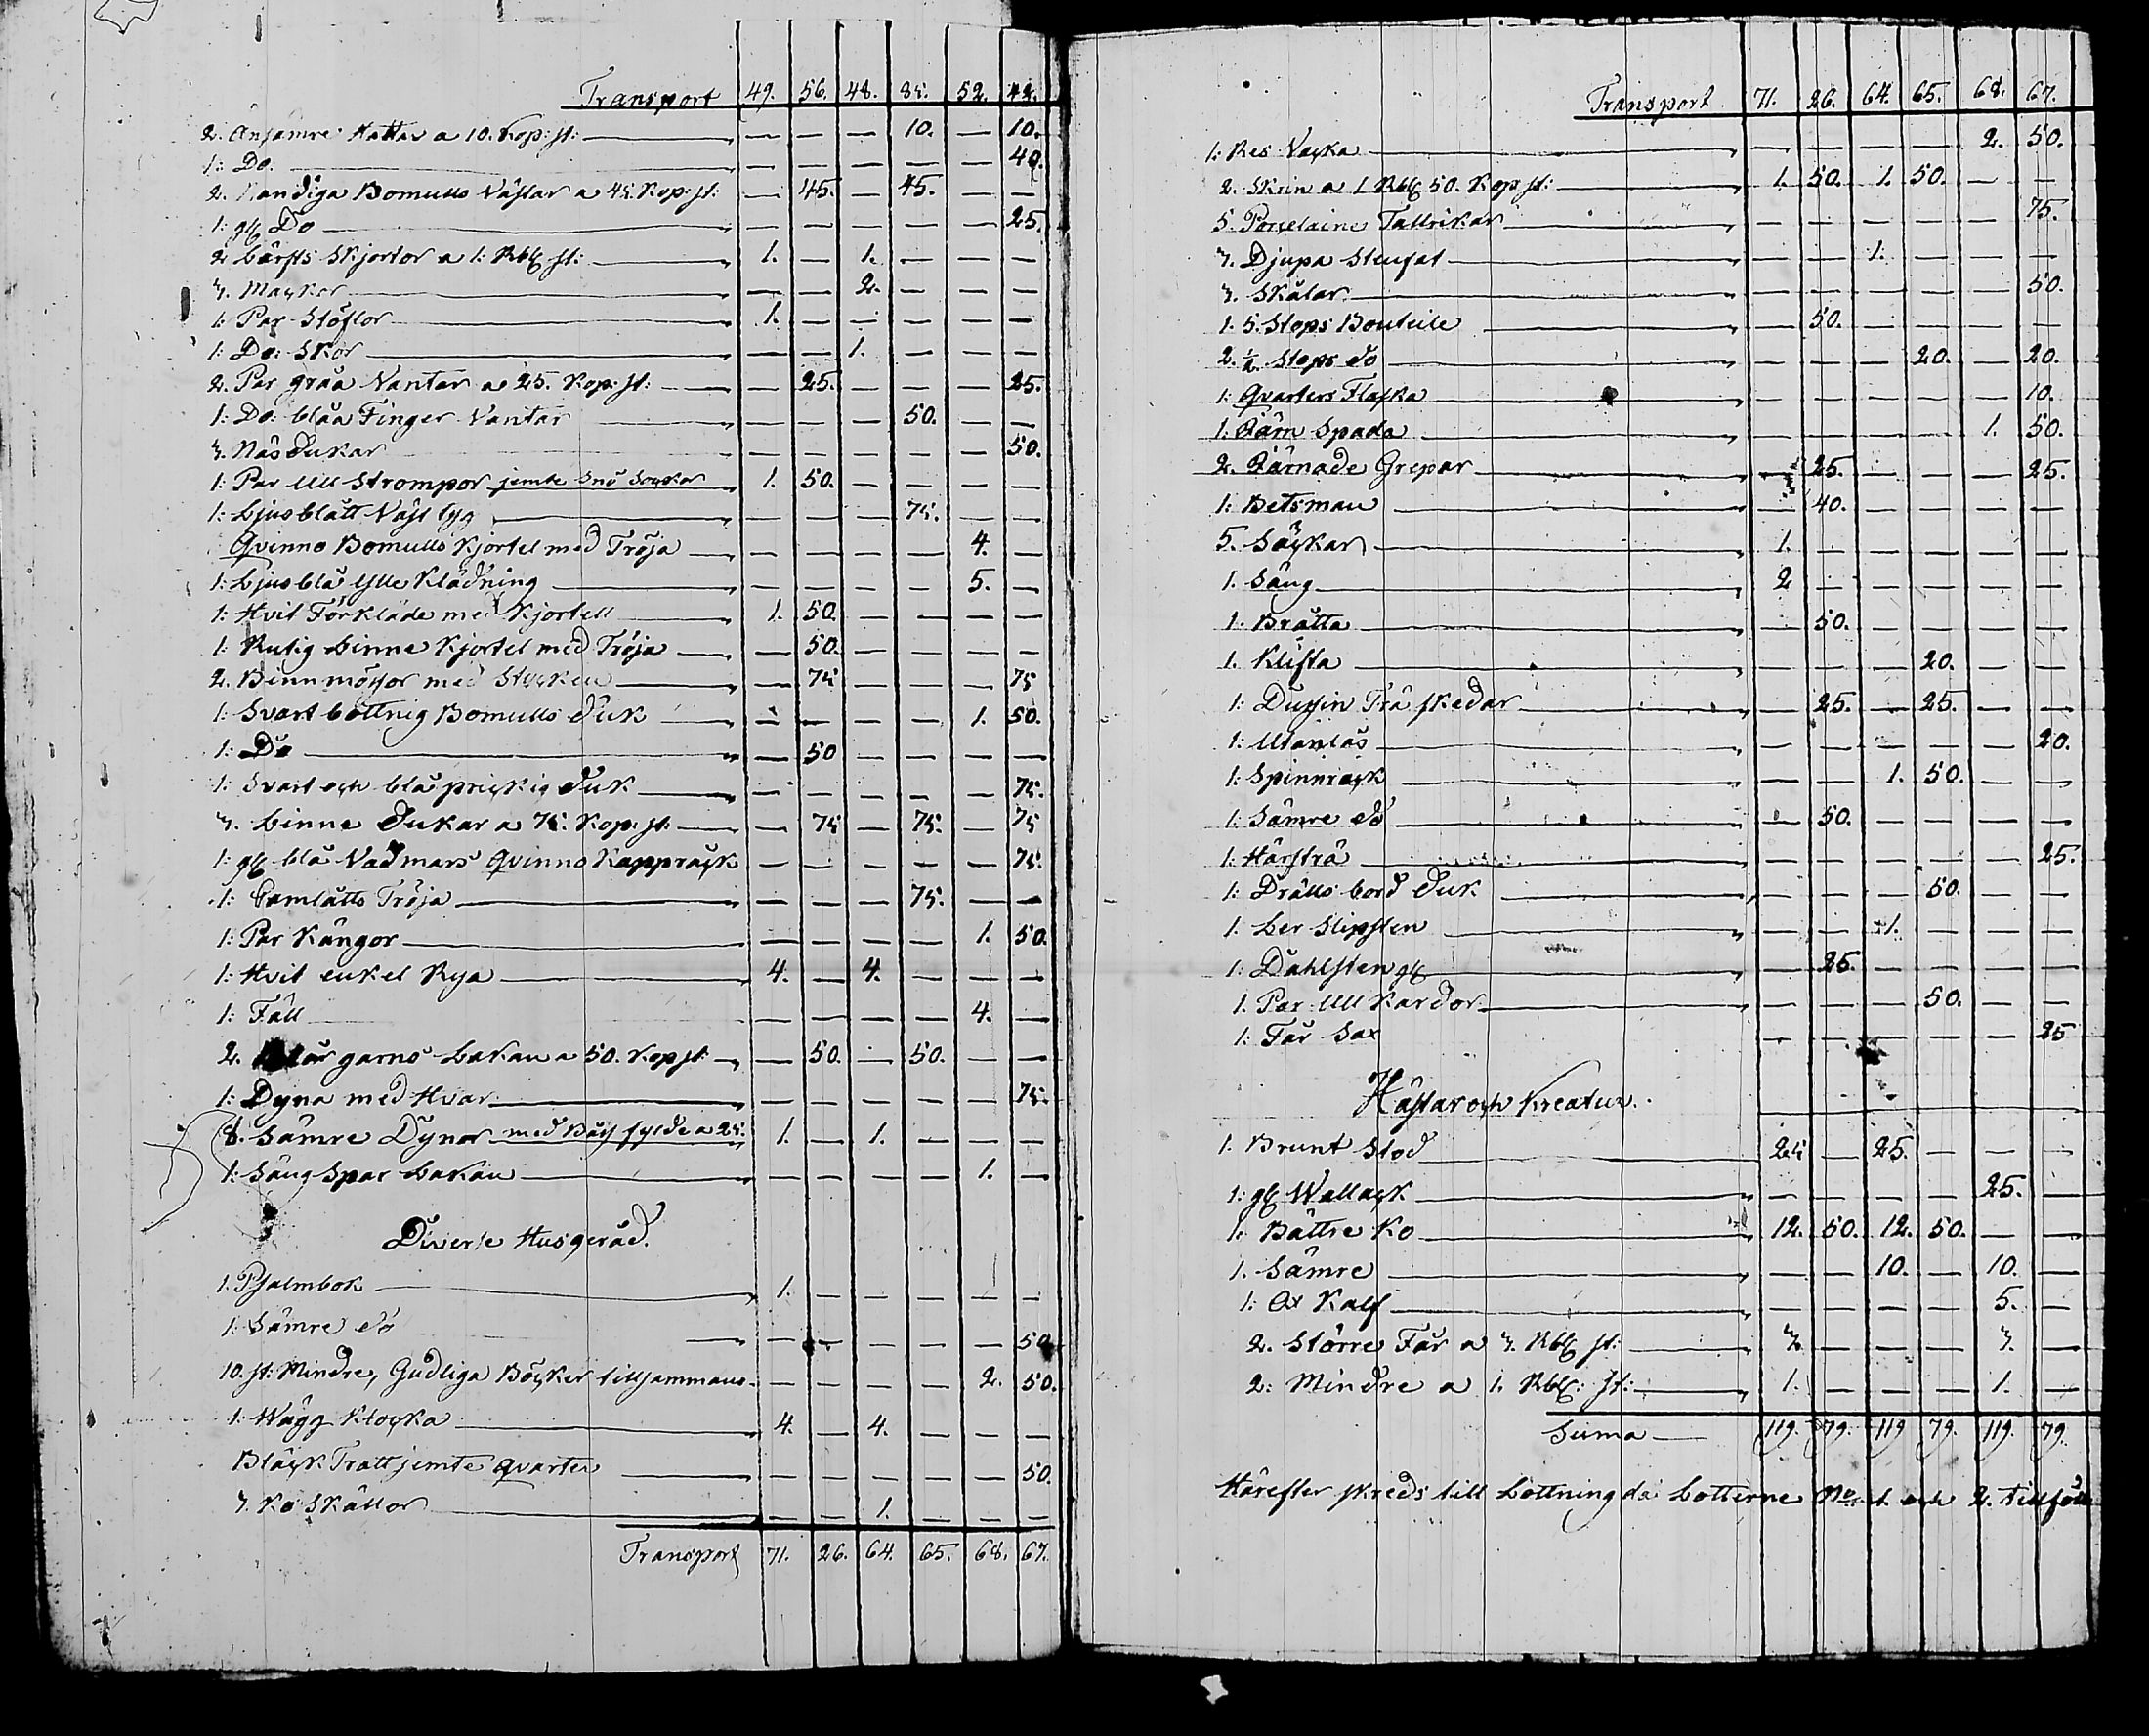 Transport 49. 56. 48. 85. 52. 42.
2. Ansämre Hattar a 10. Kop: st: — — — 10. — 10.
1: Do. — — — — — 40.
2. Randiga Bomulls Västar a 45. Kop: st: — 45. — 45. — —
1: gl Do — — — — — 25.
2 Lärfts Skjortor a 1: Rbl st: 1. — 1. — — —
3. Matskor — — 2. — — —
1: Par Stöflor 1. — — — — —
1: Do: Skor — — 1. — — —
2. Par gråa Vantar a 25. Kop: st: — 25. — — — 25.
1: Do: blåa Finger Vantar — — — 50. — —
3. Näsdukar — — — — — 50.
1: Par Ull Strompor jemte Snö Sockor 1. 50. — — — —
1: Ljusblått Väst tyg — — — 75. — —
Qvinno Bomulls Kjortel med Tröja — — — — 4. —
1: Ljusblå Ylle Klädning — — — — 5. —
1: Hvit Förkläde med Kjortell 1. 50. — — — —
1: Rutig Linne Kjortel med Tröja — 50. — — — —
2. Binnmössor med Stycken — 75 — — — 75
1: Svart bottnig Bomulls duk — — — — 1. 50.
1: Do — 50 — — — —
1: Svart och blå prickig duk — — — — — 75.
3. Linne dukar a 75. Kop: st: — 75 — 75. — 75
1: gl blå Vadmars Qvinno Kappråck — — — — — 75.
1: Camlåtts Tröja — — — 75. — —
1: Par Kängor — — — — 1. 50.
1: Hvit enkel Rya 4. — 4. — — —
1: Fäll — — — — 4. —
2. Blår garns Lakan a 50. Kop st: — 50. — 50. — —
1: Dyna med Hvar — — — — — 75.
8. Sämre Dynor med Båss fylde a 25. 1. — 1. — — —
1: Säng Spar Lakan — — — — 1. —
Diverse Husgeråd.
1. Psalmbok 1. — — — — —
1: Sämre do — — — — — 50
10. st: Mindre, Gudliga Böcker tillsammans — — — — 2. 50.
1: Wägg Klocka 4. — 4. — — —
Bläck Tratt jemte qvarter — — — — — 50.
3. Ko Skällor — — 1. — — —
Transport 71. 26. 64. 65. 68. 67.
Transport 71. 26. 64. 65. 68. 67.
1: Res Vacka — — — — 2. 50.
2. Skrin a 1 Rbl 50. Kop st: 1. 50. 1. 50. — —
5. Porslaine Tallrikar — — — — — 75.
3. Djupa Stenfat — — 1. — — —
3. Skålar — — — — — 50.
1. 5. Stops Bouteile — 50. — — — —
2. ½ Stops do — — — 20. — 20.
1: Qvarters Flaska — — — — — 10.
1: Järn Spada — — — — 1. 50.
2. Järnade Grepar — 25. — — — 25.
1: Betsman — 40. — — — —
5. Säckar 1. — — — — —
1. Säng 2 — — — — —
1. Bråtta — 50. — — — —
1. Klifta — — — 20. — —
1: Dussin Trä skedar — 25. — 25. — —
1: Utanlås — — — — — 20.
1: Spinnråck — — 1. 50. — —
1: Sämre do — 50. — — — —
1: Hårsträ — — — — — 25.
1: Drälls bord duk — — — 50. — —
1. Ler Slipsten — — 1. — — —
1: Dahlsten gl — 25. — — — —
1. Par Ull Kardor — — — 50. — —
1: Får Sax — — — — — 25
Hästar och Kreatur.
1. Brunt Stod 25 — 25. — — —
1: gl Wallack — — — — 25. —
1. Bättre Ko 12. 50. 12. 50. — —
1. Sämre — — 10. — 10. —
1: Ox Kalf — — — — 5. —
2. Större Får a 3. Rbl st: 3. — — — 3. —
2: Mindre a 1. Rbl: st: 1. — — — 1. —
Suma 119. 79. 119 79. 119. 79.
Härefter skreds till Lottning då Lotterne No 1. och 2. tillföll